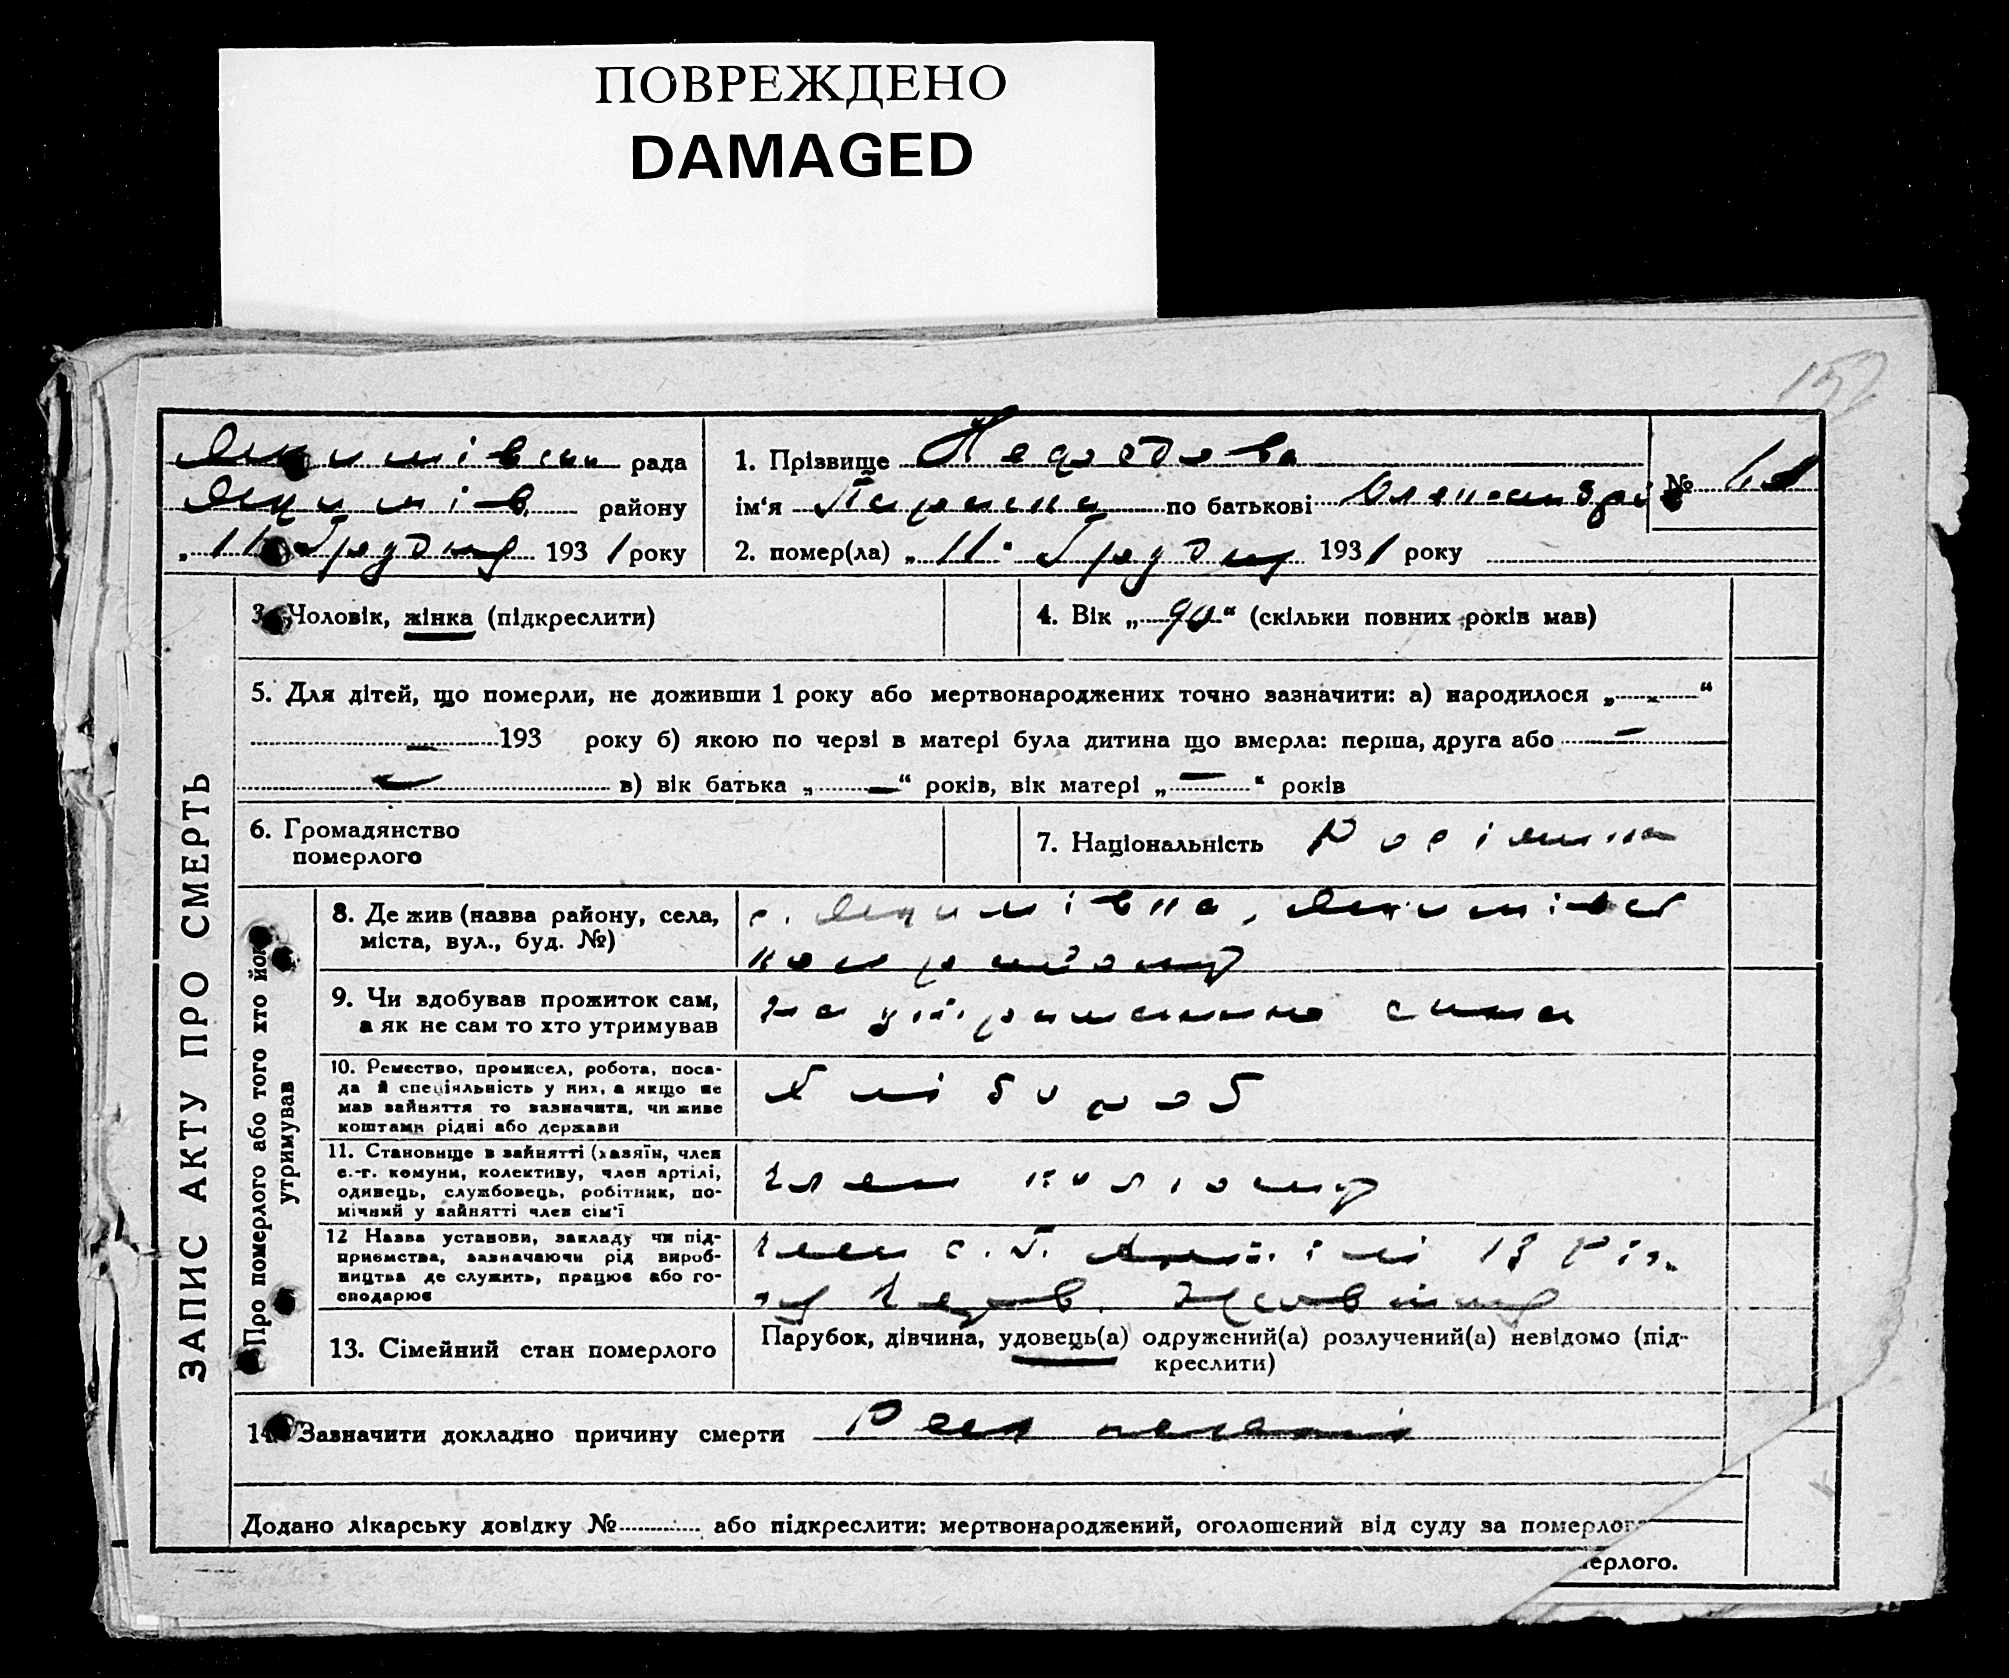 ПОВРЕЖДЕНО
DAMAGED
152
Якимівськ рада
Якимів району
„ 11 " Грудня 1931 року
1. Прізвище Федотова
ім‘я Параска по батькові Олександрів
№
2. помер(ла) „ 11 " Грудня 1931 року
ЗАПИС АКТУ ПРО СМЕРТЬ
3. Чоловік, жінка (підкреслити)
4. Вік „ 90 “ (скільки повних років мав)
5. Для дітей, що померли, не доживши 1 року або мертвонароджених точно зазначити: а) народилося „ - “
— 193 року б) якою по черзі в матері була дитина що вмерла: перша, друга або —
— в) вік батька „ — “ років, вік матері „ — “ років
6. Громадянство
померлого
7. Національність Росіянка
Про померлого або того хто його
утримував
8. Де жив (назва району, села,
міста, вул., буд. №)
с. Якимівка, Якимівськ
району
9. Чи здобував прожиток сам,
а як не сам то хто утримував
на утриманню сина
10. Ремество, промисел, робота, поса-
да й спеціяльність у них, а якщо не
мав зайняття то зазначити, чи живе
коштами рідні або держави
Хлібороб
11. Становище в зайнятті (хазяїн, член
с.-г. комуни, колективу, член артілі,
одинець, службовець, робітник, по-
мічний у зайнятті член сім‘ї
член колгоспу
12 Назва установи, закладу чи під-
приємства, зазначаючи рід вироб-
ництва де служить, працює або го-
сподарює
член с. г. Артілі 13 Річ.
Черв.
13. Сімейний стан померлого
Парубок, дівчина, удовець(а) одружений(а) розлучений(а) невідомо (під-
креслити)
14. Зазначити докладно причину смерти
Додано лікарську довідку № або підкреслити: мертвонароджений, оголошений від суду за померлого
мерлого.